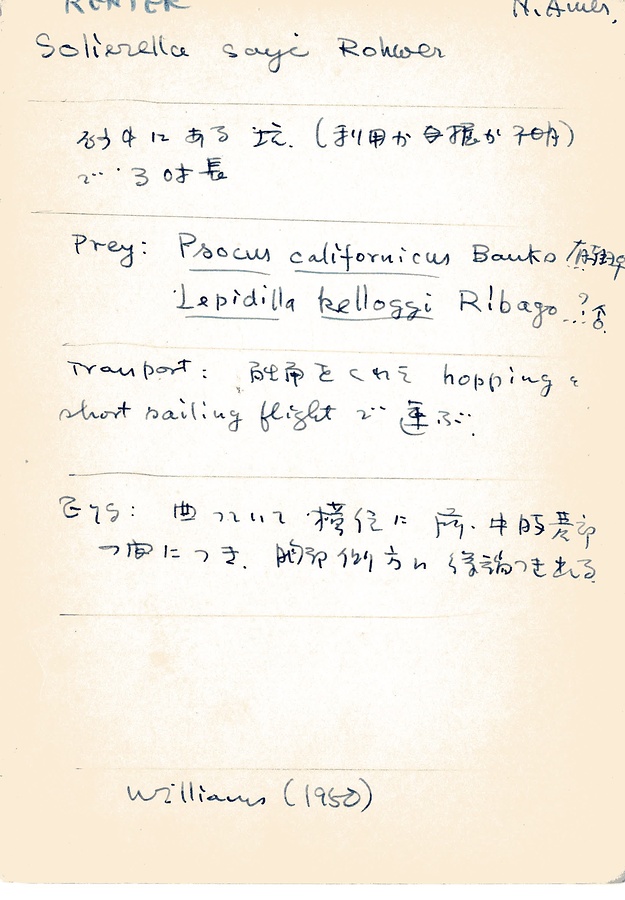 RENTER N. Amer.
Solierella sayi Rohwer
砂中にある坑.(利用か自掘か不明)
で 3 対 長
Prey: Psocus californicus Banks
Lepidilla kelloggi Ribago
Tranport: 触角をくわえ hopping と
short sailing flight で 運ぶ.
Egg: 曲っていて 横位に 前・中脚基部
の間につき. 胸部側方に 後端つき出る
Williams (1950)